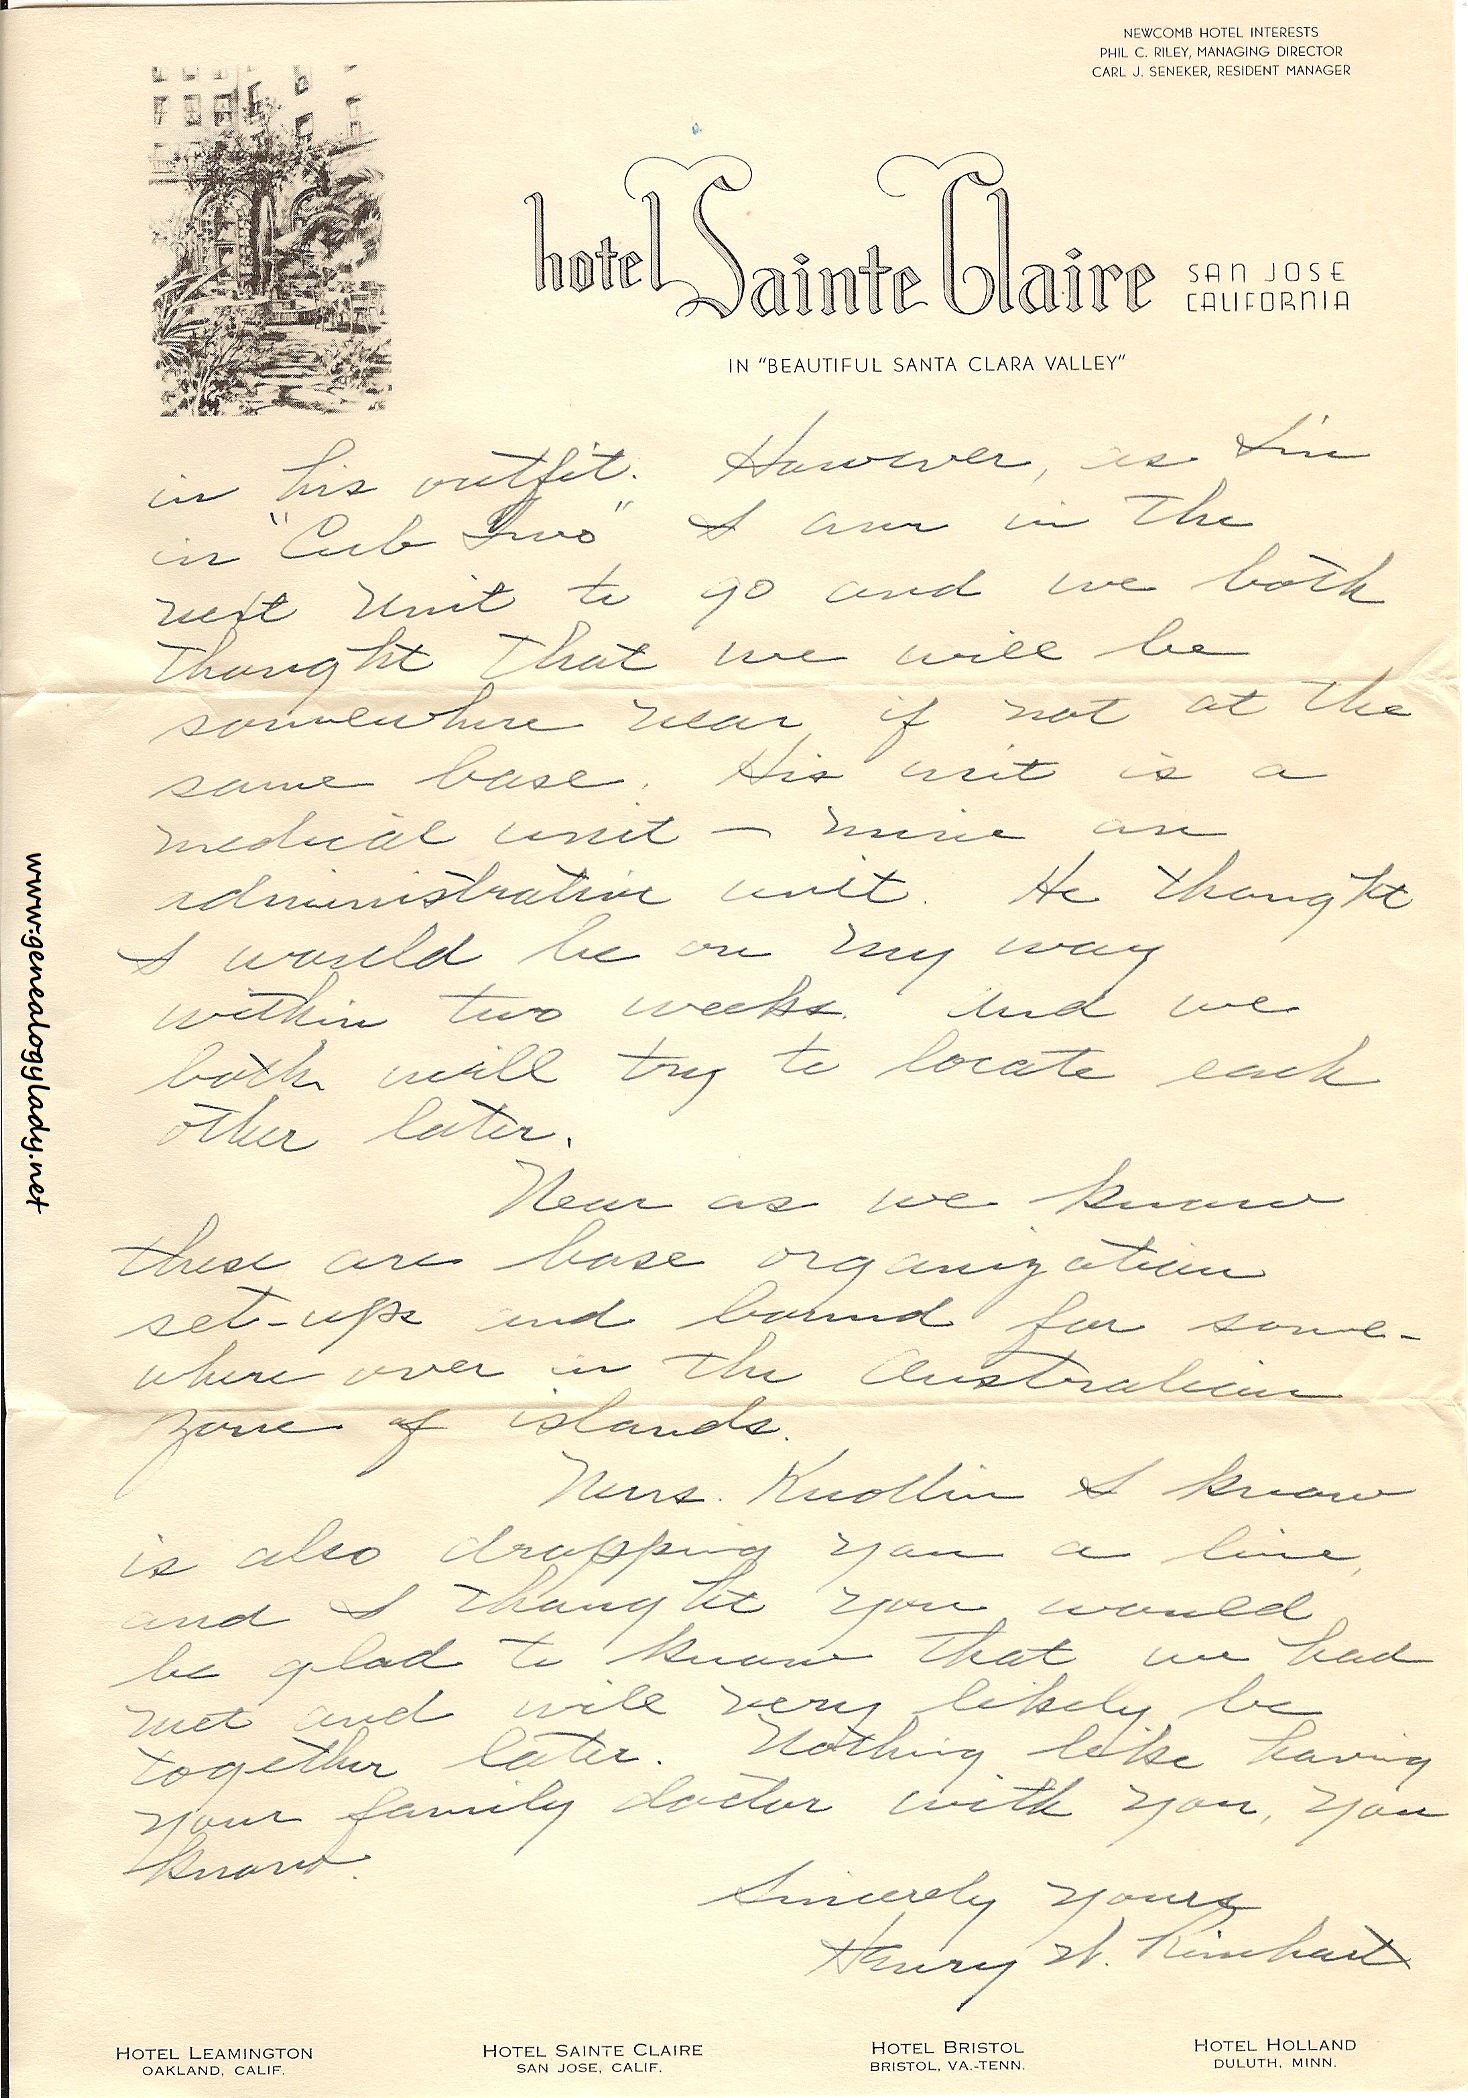 NEWCOMB HOTEL INTERESTS
PHIL C. RILEY, MANAGING DIRECTOR
CARL J. SENEKER, RESIDENT MANAGER
hotel Sainte Claire
SAN JOSE
CALIFORNIA
IN "BEAUTIFUL SANTA CLARA VALLEY"
in his outfit. However, as I'm
in "Cub Two" I am in the
next unit to go and we both
thought that we will be
somewhere near if not at the
same base. His unit is a
medical unit — mine an
administrative unit. He thought
I would be on my way
within two weeks. And we
both will try to locate each
other later.
Near as we know
these are base organization
set-ups and bound for some-
where over in the Australian
zone of islands.
Mrs. Knollin I know
is also dropping you a line,
and I thought you would
be glad to know that we had
met and will very likely be
together later. Nothing like having
your family doctor with you, you
know.
Sincerely yours
Henry W. Rinehart
www.genealogylady.net
HOTEL LEAMINGTON
OAKLAND, CALIF.
HOTEL SAINTE CLAIRE
SAN JOSE, CALIF.
HOTEL BRISTOL
BRISTOL, VA.-TENN.
HOTEL HOLLAND
DULUTH, MINN.